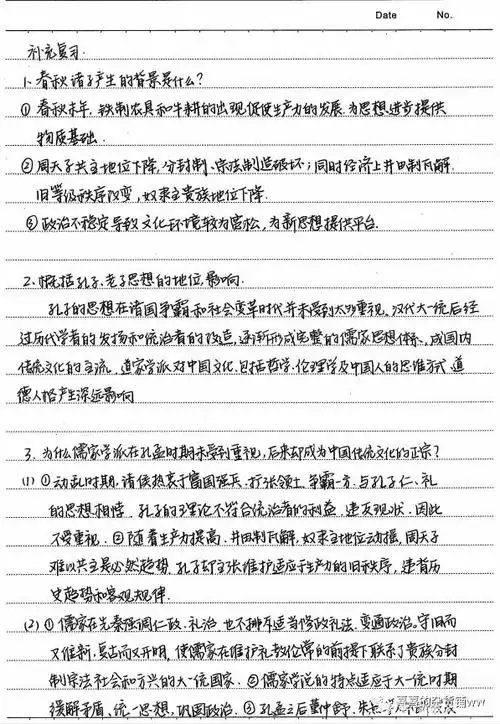 Date No.
补充复习.
1. 春秋诸子产生的背景是什么?
① 春秋末年, 铁制农具和牛耕的出现促使生产力的发展. 为思想进步提供
物质基础.
② 周天子共主地位下降, 分封制、宗法制遭破坏; 同时经济上井田制瓦解.
旧等级秩序改变, 奴隶主贵族地位下降.
③ 政治不稳定导致文化环境较为宽松, 为新思想提供平台.
2. 概括孔子、老子思想的地位、影响.
孔子的思想在诸国争霸和社会变革时代并未受到太多重视. 汉代大一统后经
过历代学者的发扬和统治者的改造, 逐渐形成完整的儒家思想体系、成国内
传统文化的主流. 道家学派对中国文化. 包括哲学. 伦理学及中国人的思维方式、道
德人格产生深远影响
3. 为什么儒家学派在孔孟时期未受到重视, 后来却成为中国传统文化的正宗?
(1) ① 动乱时期. 诸侯热衷于富国强兵、扩张领土、争霸一方. 与孔子仁、礼
的思想相悖. 孔子的理论不符合统治者的利益、违反现状、因此
不受重视. ② 随着生产力提高. 井田制瓦解. 奴隶主地位动摇. 周天子
难以共主是必然趋势. 孔子却主张维护适应于生产力的旧秩序, 违背历
史趋势和客观规律.
(2) ① 儒家在先秦强调仁政、礼治, 也不排斥适当修政礼法、变通政治。守旧而
又维新. 复古而又开明, 使儒家在维护礼教伦常的前提下联系了贵族分封
制宗法社会和方兴的大一统国家. ② 儒家学说的特点适应于大一统时期
缓解矛盾、统一思想、巩固政治. ③ 孔孟之后董仲舒、朱
嘉嘉的杂货铺wv